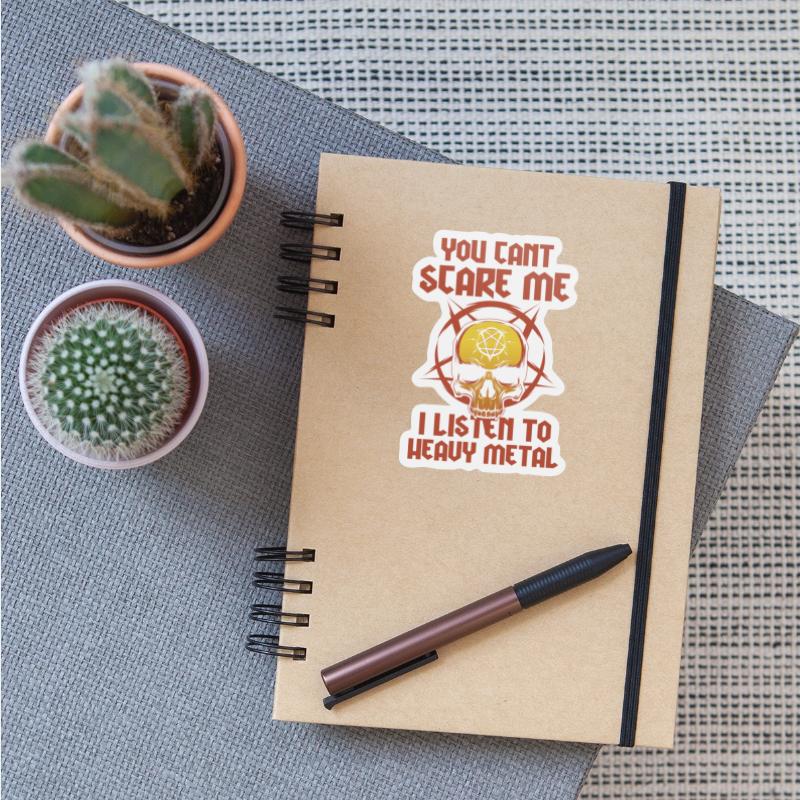 YOU CANT
SCARE ME
I LISTEN TO
HEAVY METAL